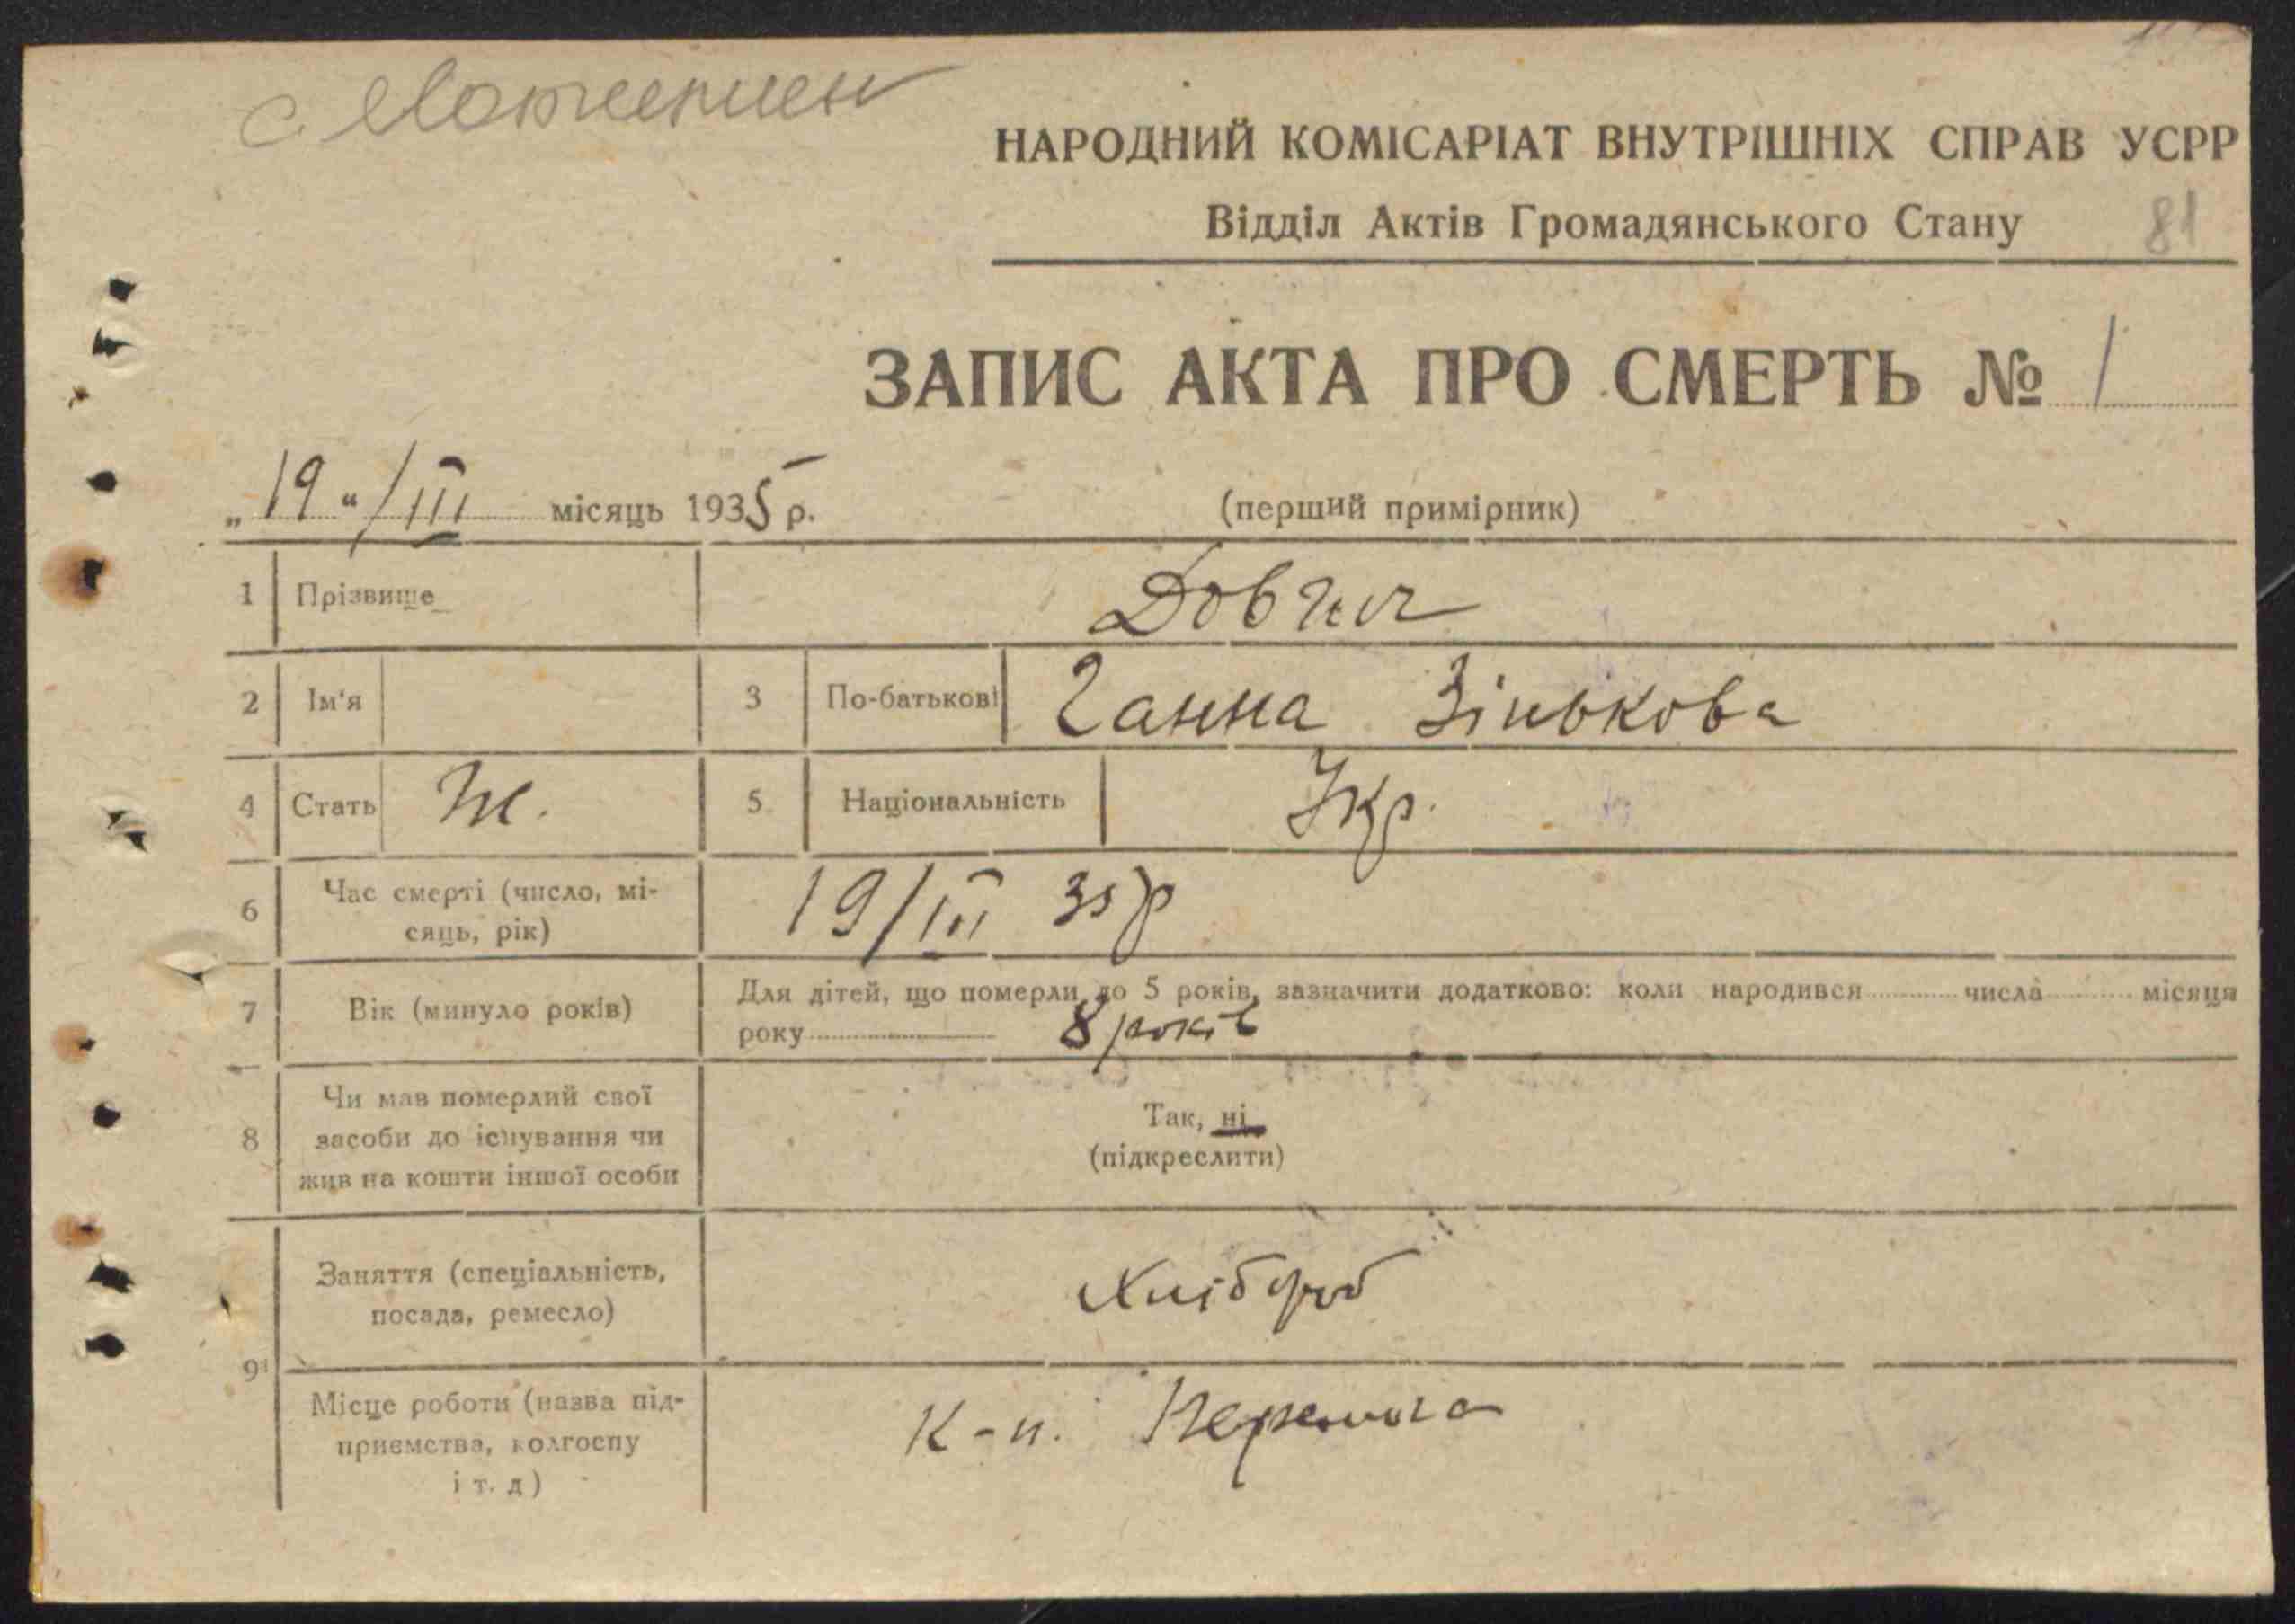 с.
НАРОДНИЙ КОМІСАРІАТ ВНУТРІШНІХ СПРАВ УСРР
Відділ Актів Громадянського Стану 81
ЗАПИС АКТА ПРО СМЕРТЬ № 1
„19“/III місяць 1935 р. (перший примірник)
1 Прізвище Довгич
2 Ім'я 3 По-батькові Ганна Зінькова
4 Стать Ж. 5 Національність Укр.
6 Час смерті (число, мі-
сяць, рік) 19/III 35 р
7 Вік (минуло років) Для дітей, що померли до 5 років, зазначити додатково: коли народився числа місяця
року 8 років
8 Чи мав померлий свої
засоби до існування чи
жив на кошти іншої особи
Так, ні
(підкреслити)
9 Заняття (спеціальність,
посада, ремесло) Хлібороб
Місце роботи (назва під-
приємства, колгоспу
і т. д) Перемога